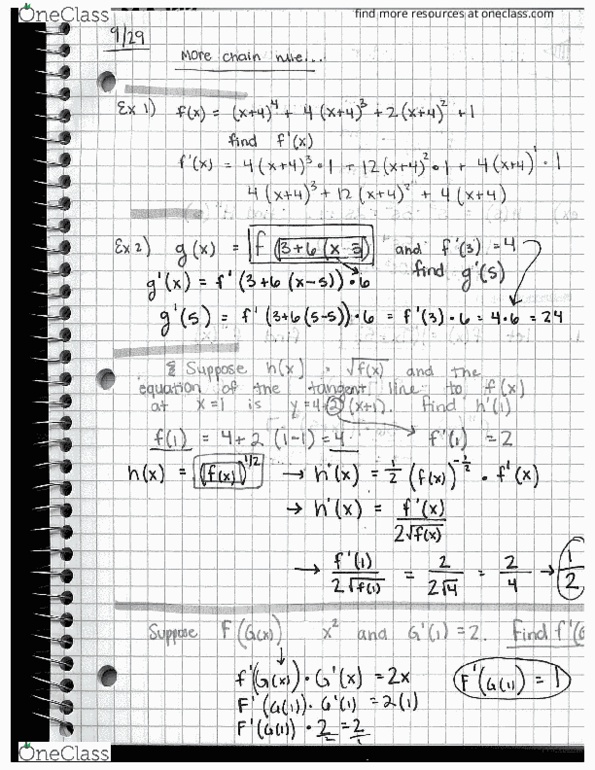 OneClass
find more resources at oneclass.com
9/29
More chain rule...
Ex 1) f(x) = (x+4)^4 + 4(x+4)^3 + 2(x+4)^2 + 1
find f'(x)
f'(x) = 4(x+4)^3 · 1 + 12(x+4)^2 · 1 + 4(x+4)^1 · 1
4(x+4)^3 + 12(x+4)^2 + 4(x+4)
Ex 2) g(x) = f(3+6(x-5)) and f'(3) = 4
find g'(5)
g'(x) = f'(3+6(x-5)) · 6
g'(5) = f'(3+6(5-5)) · 6 = f'(3) · 6 = 4·6 = 24
Suppose h(x) · √f(x) and the
equation of the tangent line to f(x)
at x=1 is y=4+2(x+1). find h'(1)
f(1) = 4+2(1-1) = 4 f'(1) = 2
h(x) = (f(x))^1/2 → h'(x) = 1/2 (f(x))^-1/2 · f'(x)
→ h'(x) = f'(x)/2√f(x)
→ f'(1)/2√f(1) = 2/2√4 = 2/4 → 1/2
Suppose F(G(x)) x^2 and G'(1) = 2. Find f'(G
f'(G(x)) · G'(x) = 2x F'(G(1)) = 1
F'(G(1)) · G'(1) = 2(1)
F'(G(1)) · 2/2 = 2/
OneClass